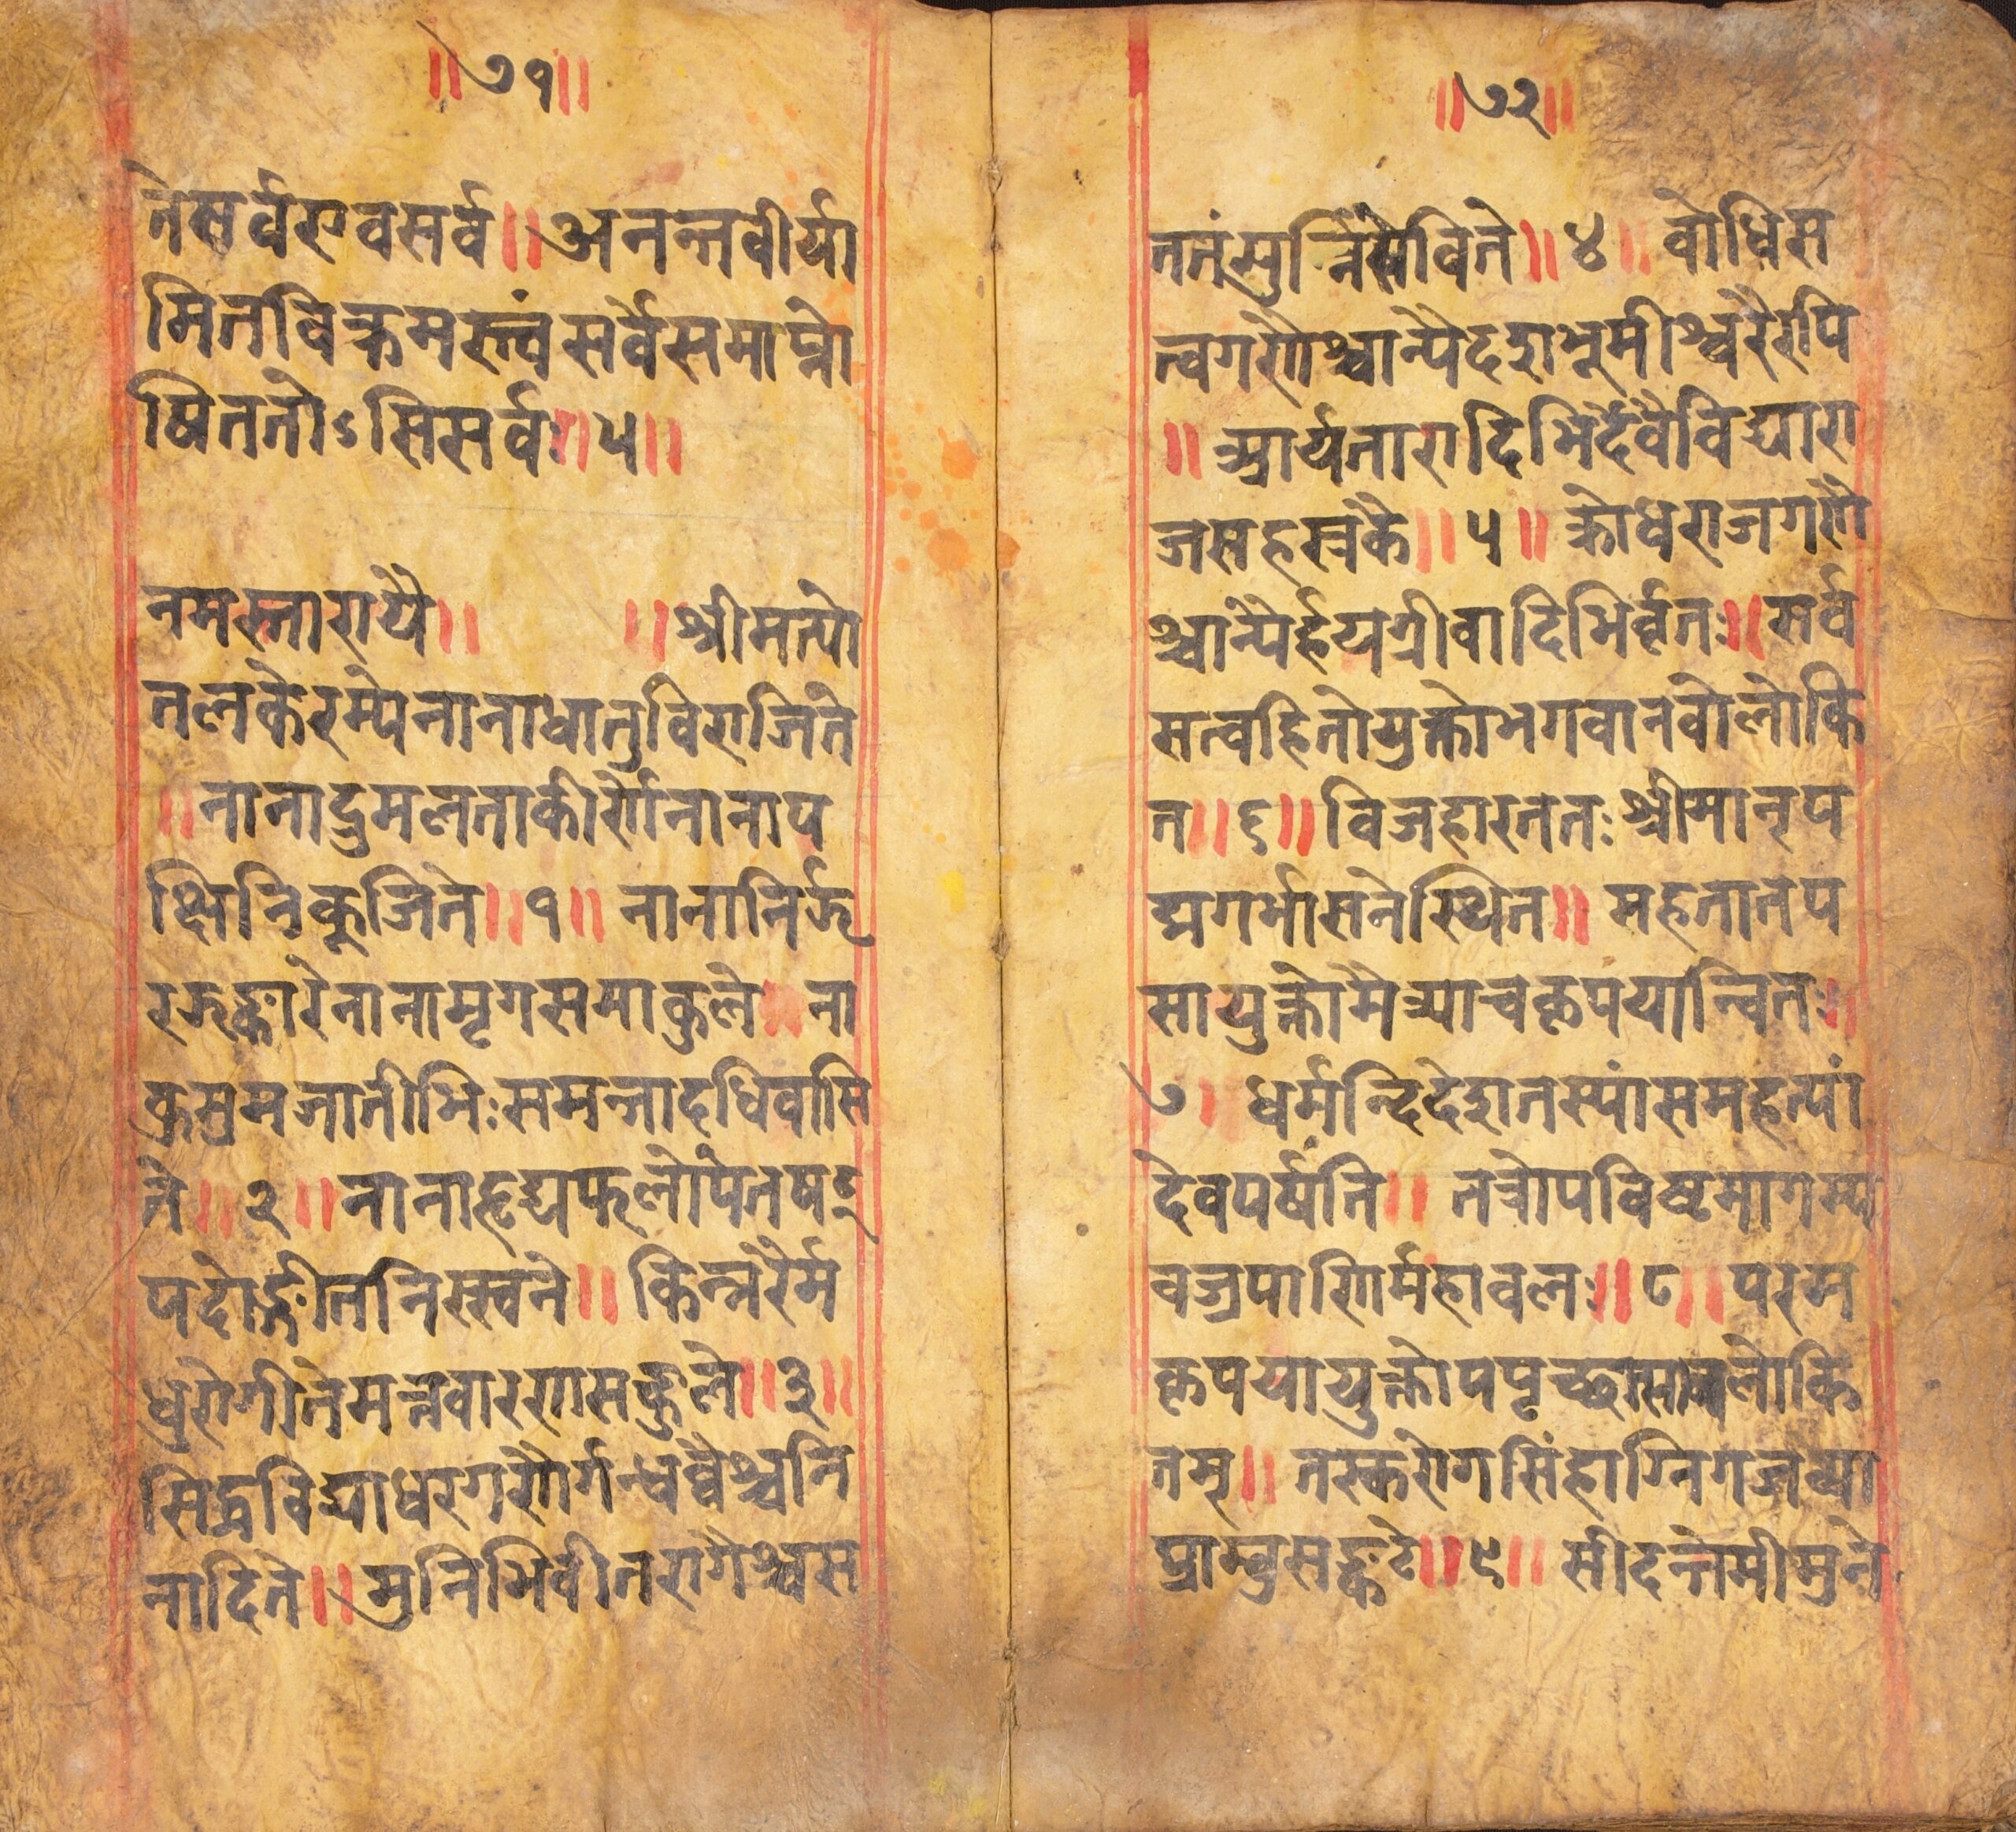 ॥७१॥
ते सर्वएवसर्व॥अनन्तवीर्या
मितविक्रमस्त्वं सर्वे समाप्नो
षिततोऽसिसर्वः॥५॥
नमस्तारायै॥ ॥श्रीमत्पो
तलकेरम्येनानाधातुविराजिते
॥नानाद्रुमलताकीर्णेनानाप
क्षिनिकूजिते॥१॥ नानानिर्झ
रझङ्कारेनानामृगसमाकुले॥ना
कुसुमजातीभिःसमन्तादधिवासि
ते॥२॥नानाहृद्यफलोपेतषट्
पदोङ्गीतनिस्स्वने॥किन्नरैर्म
धुरोगीतेमत्तवारणसङ्कुले॥३॥
सिद्धविद्याधरगणैर्गन्धर्व्वैश्चनि
नादिते॥मुनिभिवीतरागैश्चस
॥७२॥
ततंसुर्न्निसेविते॥४॥ वोधिस
त्वगणैश्चान्यैदशभूमीश्वरैरपि
॥आर्यतारादिभिर्देवैविद्यारा
जसहस्त्रकै॥५॥क्रोधराजगणै
श्चान्यैर्हयग्रीवादिभिर्वृतः॥सर्व
सत्वहितोयुक्तोभगवानवोलोकि
त॥६॥विजहारततःश्रीमान्प
द्मगर्भासनेस्थित॥ महतातप
सायुक्तोमैत्र्याचकृपयान्वितः॥
७॥ धर्मन्दिदेशतस्यांसमहत्यां
देवपर्षंति॥ तत्रोपविष्टमागम्य
वज्रपाणिर्महावलः॥८॥परम
कृपयायुक्तोपपृच्छासावलोकि
तम्॥तस्करोगसिंहाग्निगजव्या
घ्राम्वुसङ्कटे॥९॥ सीदन्तेमीमुने